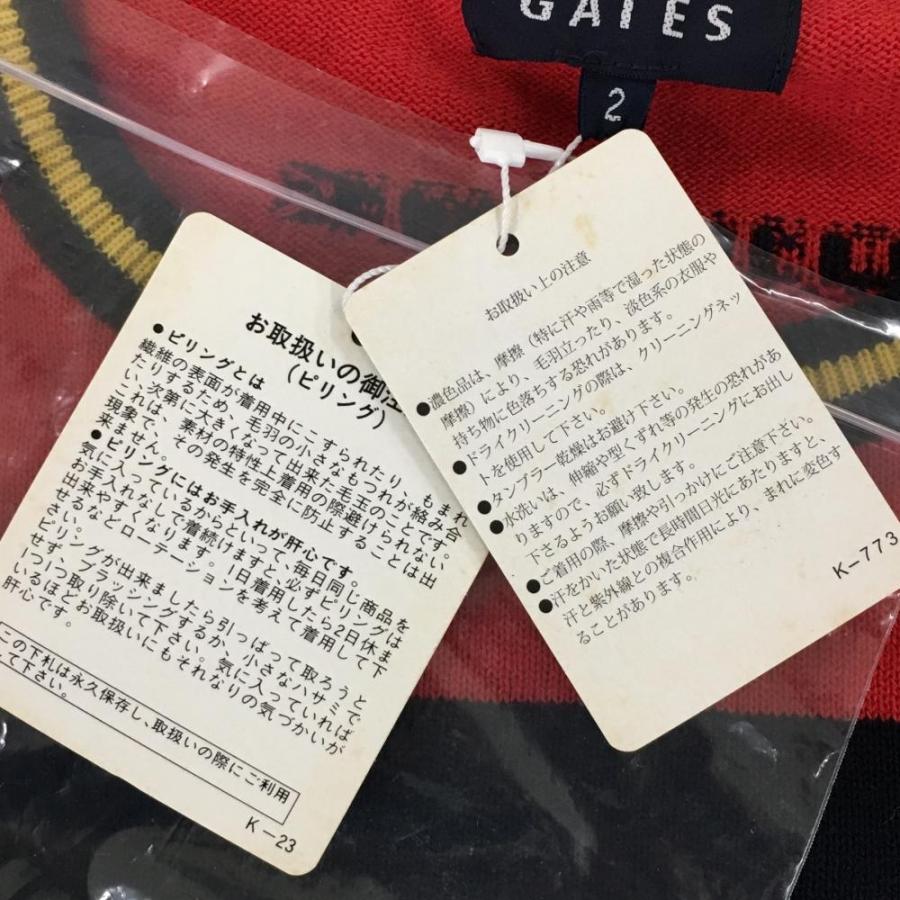 GATES
2
お取扱いの御注
(ピリング)
●ピリングとは
繊維の表面が着用中にこすられたり、もまれ
たりするため、毛羽の小さなもつれが絡み合
い、次第に大きくなって出来た毛玉のことです。
これは、素材の特性上着用の際避けられない
現象で、その発生を完全に防止することは出
来ません。
●ピリングにはお手入れが肝心です。
気に入っているからといって、毎日同じ商品を
お手入れなしで着続けますと、必ずピリングは
出来やすくなります。1日着用したら2日休ま
せるなどローテーションを考えて着用して下
さい。
ピリングが出来ましたら引っぱって取ろうと
せず、ブラッシングするか、小さなハサミで
1つ1つ取り除いて下さい。気に入っていれば
いるほどお取扱いにもそれなりの気づかいが
肝心です。
この下札は永久保存し、取扱いの際にご利用
して下さい。
K-23
お取扱い上の注意
●濃色品は、摩擦(特に汗や雨等で湿った状態の
摩擦)により、毛羽立ったり、淡色系の衣服や
持ち物に色落ちする恐れがあります。
●ドライクリーニングの際は、クリーニングネッ
トを使用して下さい。
●タンブラー乾燥はお避け下さい。
●水洗いは、伸縮や型くずれ等の発生の恐れがあ
りますので、必ずドライクリーニングにお出し
下さるようお願い致します。
●ご着用の際、摩擦や引っかけにご注意下さい。
●汗をかいた状態で長時間日光にあたりますと、
汗と紫外線との複合作用により、まれに変色す
ることがあります。
K-773